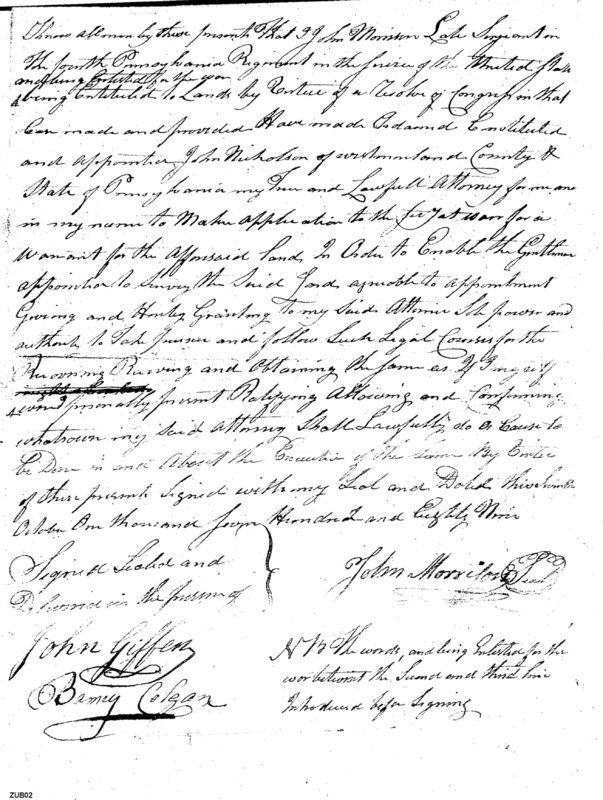 Know all men by these presents That I John Morrison Late Sergeant in
The fourth Pennsylvania Regiment in the Service of the United States
and being Enlisted for the war
being Entituled to Lands by Vertue of a Resolve of Congress in that
Case made and provided Have made Ordained Constituted
and appointed John Nicholson of westmorland County &
State of Pennsylvania my True and Lawfull Attorney for me and
in my name to Make application to the for a
Warrant for the Afforsaid land In Order to Enable the Gentlemen
appointed to Survey the Said Land agreable to appointment
Giveing and Hereby Granting to my Said Attorney power and
authority to Take persue and follow Such Legal Courses for the
Recovering Receiving and Obtaining the Same as If I myself
were personally present Ratifying Allowing and Confirming
whatsoever my said Attorney Shall Lawfully do Or Cause to
be Done in and About the Execution of the same By Vertue
of these presents Signed with my Seal and Dated this
October One thousand Seven Hundred and Eighty Nine
Signed Sealed and
Delivered in the presence of
John Morrison Seal
John Giffen
Barney Colgan
NB The words, and being Enlisted for the
war between the Second and third line
Introduced before Signing
ZUB02